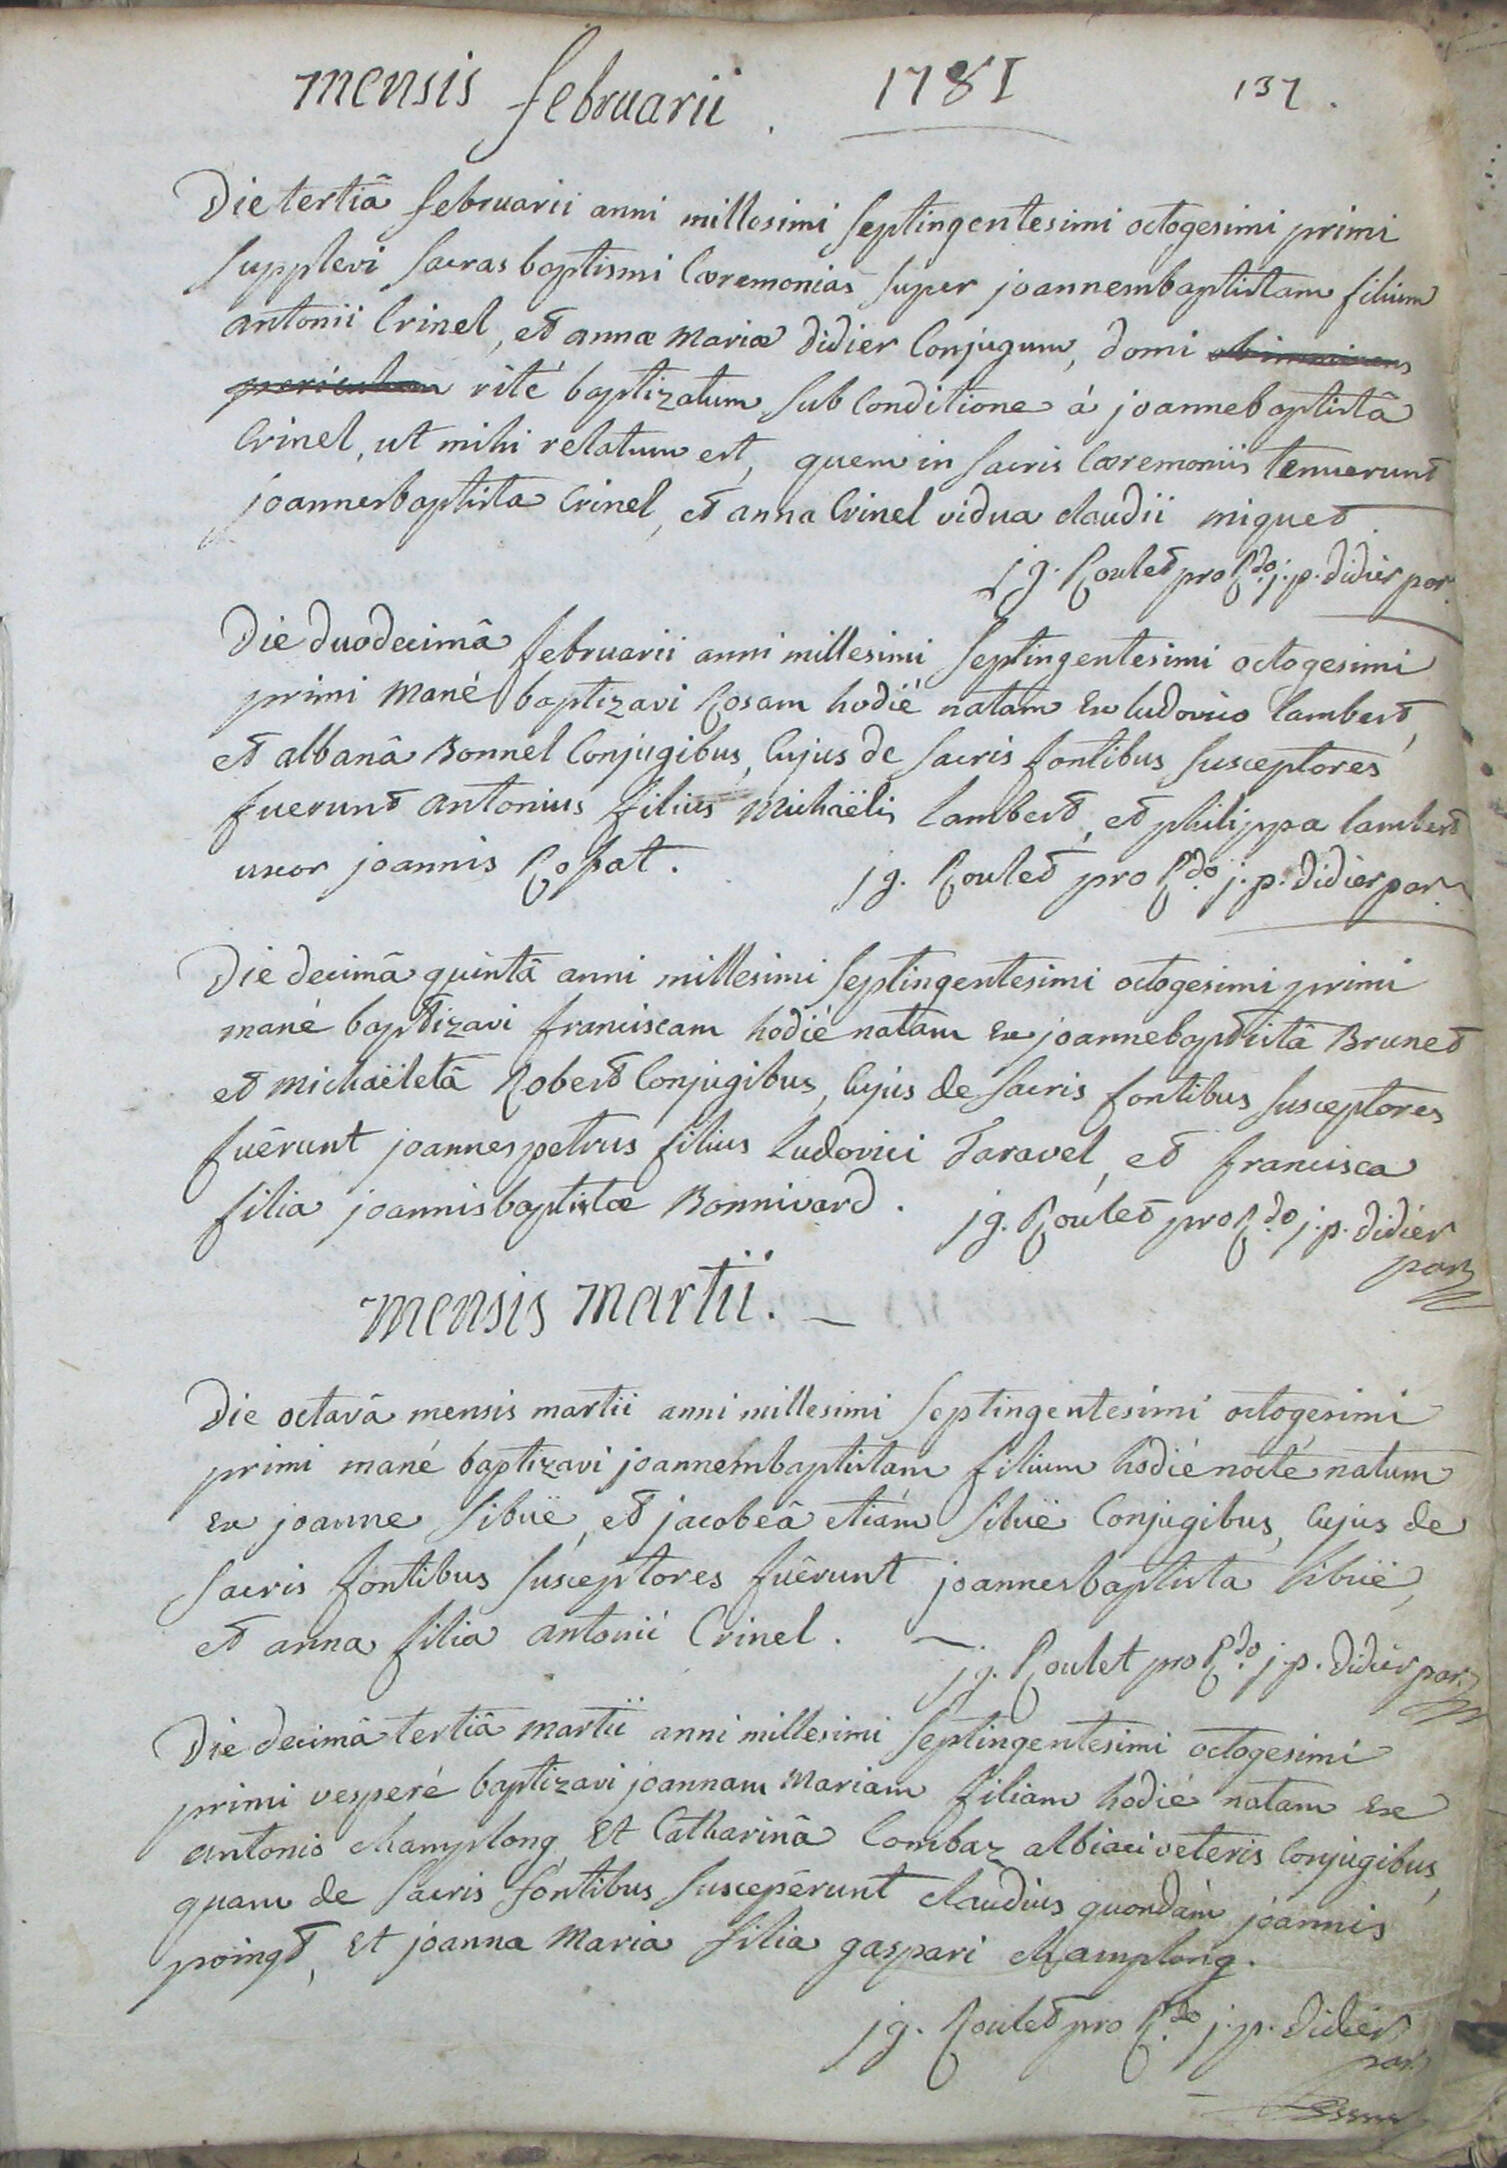 mensis februarii. 1781 137.
Die tertiâ februarii anni millesimi septingentesimi octogesimi primi
supplevi sacras baptismi Cæremonias super joannembaptistam filium
antonii Crinel, et annæ Mariæ didier Conjugum, domi
rité baptizatum sub Conditione á joannebaptistâ
Crinel, ut mihi relatum est, quem in sacris Cæremoniis tenuerunt
joannesbaptista Crinel, et anna Crinel vidua claudii miguet
jg. Roulet pro Rdo j. p. didier par.
Die duodecimâ februarii anni millesimi septingentesimi octogesimi
primi Mané baptizavi Rosam hodié natam ex ludovico lambert,
et albanâ Bonnel Conjugibus, Cujus de sacris fontibus susceptores
fuerunt antonius filius Michaëlis lambert, et philippa lambert
uxor joannis Rossat.
jg. Roulet pro Rdo j. p. didier par.
Die decimâ quintâ anni millesimi septingentesimi octogesimi primi
mané baptizavi franciscam hodié natam ex joannebaptistâ Brunet
et Michaëletâ Robert Conjugibus, Cujus de sacris fontibus susceptores
fuêrunt joannespetrus filius Ludovici Taravel, et francisca
filia joannisbaptistæ Bonnivard.
jg. Roulet pro Rdo j. p. didier
par.
mensis martii.
Die octavâ mensis martii anni millesimi septingentesimi octogesimi
primi mané baptizavi joannembaptistam filium hodié nocté natum
ex joanne sibüe, et jacobeâ etiám sibüe Conjugibus, Cujus de
sacris fontibus susceptores fuêrunt joannesbaptista sibüe,
et anna filia antonii Crinel.
jg. Roulet pro Rdo j. p. didier par.
Die decimâ tertiâ martii anni millesimi septingentesimi octogesimi
primi vesperé baptizavi joannam Mariam filiam hodié natam ex
antonio champlong, et Catharinâ Combaz albiaci veteris Conjugibus,
quam de sacris fontibus suscepêrunt claudius quondám joannis
poingt, et joanna Maria filia gaspari champlong.
jg. Roulet pro Rdo j. p. didier
par.